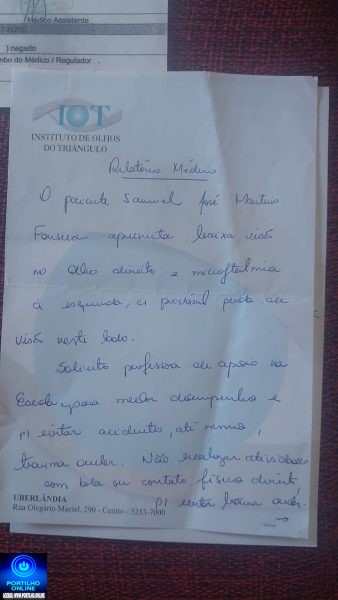 Médico Assistente
) negado
mbo do Médico / Regulador
IOT
INSTITUTO DE OLHOS
DO TRIÂNGULO
Relatório Médico
O paciente Samuel José Martins
Fonseca apresenta baixa visão
no olho direito e microftalmia
à esquerda, c/ provável perda de
visão neste lado.
Solicito professora de apoio na
Escola para melhor desempenho e
p/ evitar acidentes, até mesmo,
trauma ocular. Não realizar atividades
com bola ou contato físico direto,
p/ evitar trauma ocular.
→
UBERLÂNDIA
Rua Olegário Maciel, 290 - Centro - 3253-7000
PORTILHO
ONLINE